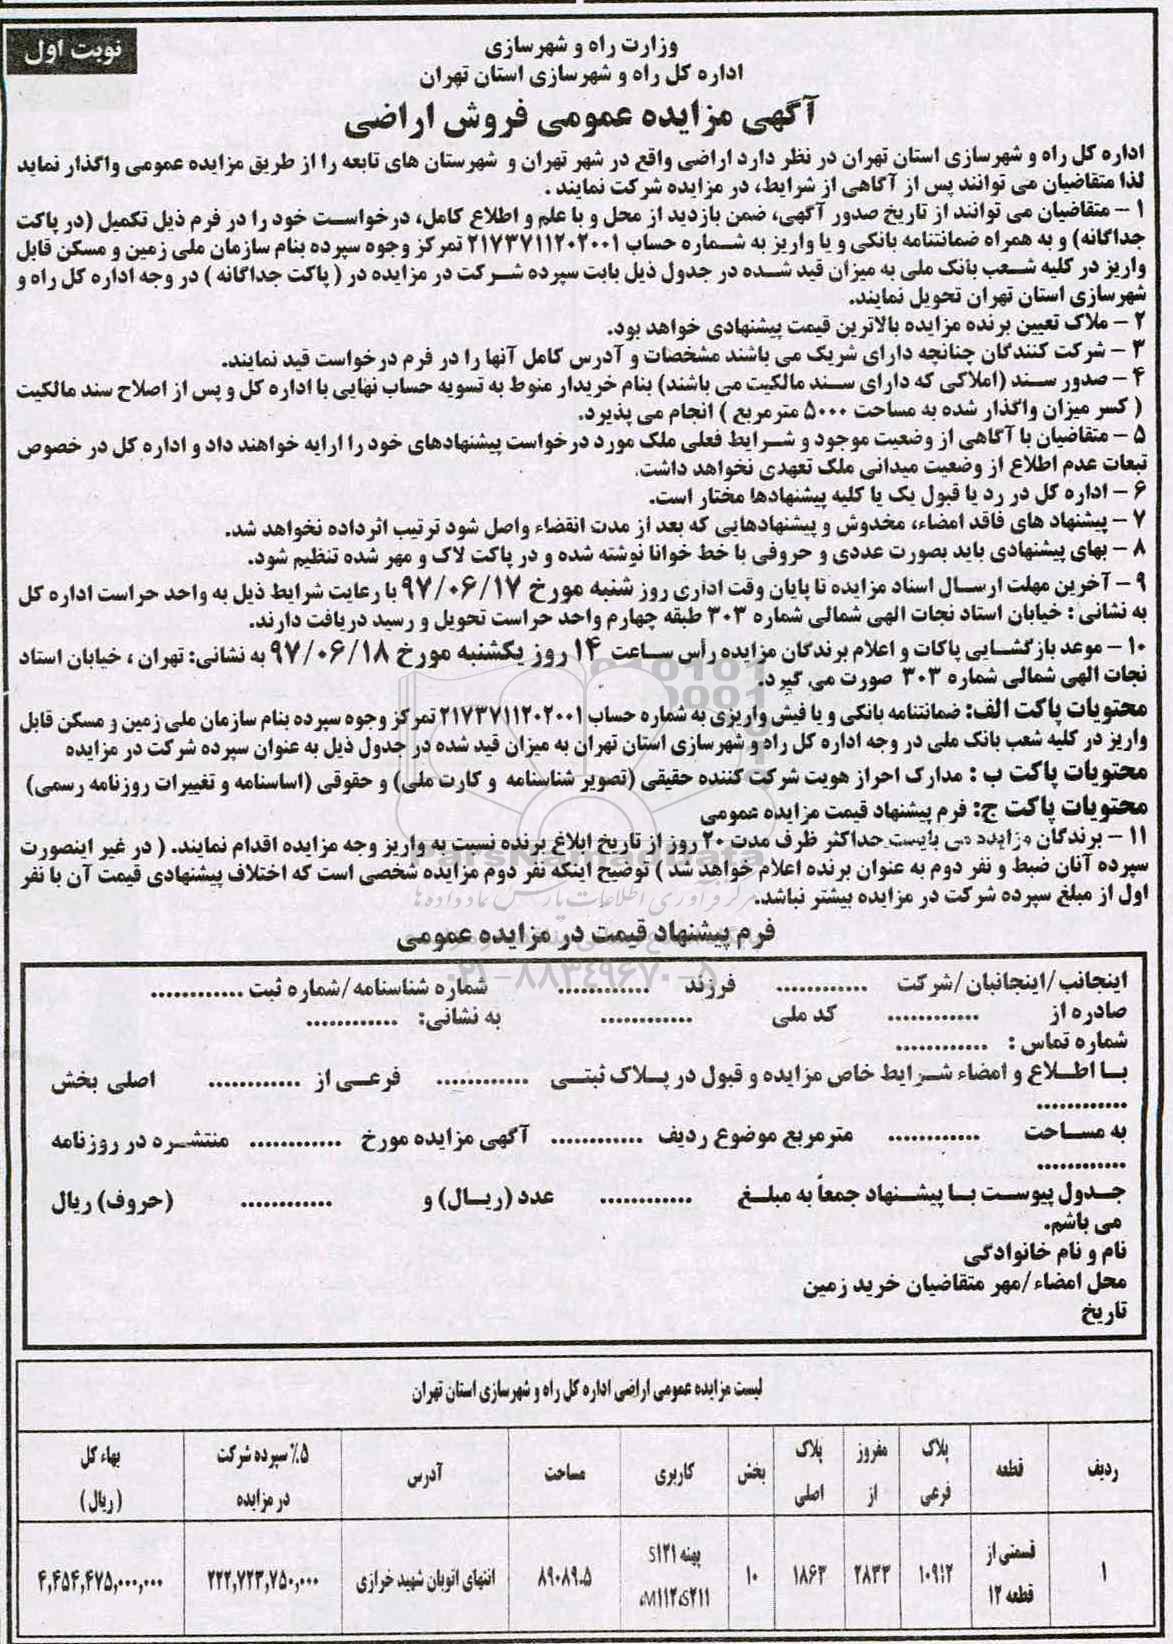 نوبت اول
وزارت راه و شهرسازی
اداره کل راه و شهرسازی استان تهران
آگهی مزایده عمومی فروش اراضی
اداره کل راه و شهرسازی استان تهران در نظر دارد اراضی واقع در شهر تهران و شهرستان های تابعه را از طریق مزایده عمومی واگذار نماید
لذا متقاضیان می توانند پس از آگاهی از شرایط، در مزایده شرکت نمایند .
۱ – متقاضیان می توانند از تاریخ صدور آگهی، ضمن بازدید از محل و با علم و اطلاع کامل، درخواست خود را در فرم ذیل تکمیل (در پاکت
جداگانه) و به همراه ضمانتنامه بانکی و یا واریز به شماره حساب ۲۱۷۳۷۱۱۲۰۲۰۰۱ تمرکز وجوه سپرده بنام سازمان ملی زمین و مسکن قابل
واریز در کلیه شعب بانک ملی به میزان قید شده در جدول ذیل بابت سپرده شرکت در مزایده در ( پاکت جداگانه ) در وجه اداره کل راه و
شهرسازی استان تهران تحویل نمایند.
۲ – ملاک تعیین برنده مزایده بالاترین قیمت پیشنهادی خواهد بود.
۳ – شرکت کنندگان چنانچه دارای شریک می باشند مشخصات و آدرس کامل آنها را در فرم درخواست قید نمایند.
۴ – صدور سند (املاکی که دارای سند مالکیت می باشند) بنام خریدار منوط به تسویه حساب نهایی با اداره کل و پس از اصلاح سند مالکیت
( کسر میزان واگذار شده به مساحت ۵۰۰۰ مترمربع ) انجام می پذیرد.
۵ – متقاضیان با آگاهی از وضعیت موجود و شرایط فعلی ملک مورد درخواست پیشنهادهای خود را ارایه خواهند داد و اداره کل در خصوص
تبعات عدم اطلاع از وضعیت میدانی ملک تعهدی نخواهد داشت.
۶ – اداره کل در رد یا قبول یک یا کلیه پیشنهادها مختار است.
۷ – پیشنهاد های فاقد امضاء، مخدوش و پیشنهادهایی که بعد از مدت انقضاء واصل شود ترتیب اثر داده نخواهد شد.
۸ – بهای پیشنهادی باید بصورت عددی و حروفی با خط خوانا نوشته شده و در پاکت لاک و مهر شده تنظیم شود.
۹ – آخرین مهلت ارسال اسناد مزایده تا پایان وقت اداری روز شنبه مورخ ۹۷/۰۶/۱۷ با رعایت شرایط ذیل به واحد حراست اداره کل
به نشانی : خیابان استاد نجات الهی شمالی شماره ۳۰۳ طبقه چهارم واحد حراست تحویل و رسید دریافت دارند.
۱۰ – موعد بازگشایی پاکات و اعلام برندگان مزایده رأس ساعت ۱۴ روز یکشنبه مورخ ۹۷/۰۶/۱۸ به نشانی: تهران ، خیابان استاد
نجات الهی شمالی شماره ۳۰۳ صورت می گیرد.
محتویات پاکت الف: ضمانتنامه بانکی و یا فیش واریزی به شماره حساب ۲۱۷۳۷۱۱۲۰۲۰۰۱ تمرکز وجوه سپرده بنام سازمان ملی زمین و مسکن قابل
واریز در کلیه شعب بانک ملی در وجه اداره کل راه و شهرسازی استان تهران به میزان قید شده در جدول ذیل به عنوان سپرده شرکت در مزایده
محتویات پاکت ب : مدارک احراز هویت شرکت کننده حقیقی (تصویر شناسنامه و کارت ملی) و حقوقی (اساسنامه و تغییرات روزنامه رسمی)
محتویات پاکت ج: فرم پیشنهاد قیمت مزایده عمومی
۱۱ – برندگان مزایده می بایست حداکثر ظرف مدت ۲۰ روز از تاریخ ابلاغ برنده نسبت به واریز وجه مزایده اقدام نمایند. ( در غیر اینصورت
سپرده آنان ضبط و نفر دوم به عنوان برنده اعلام خواهد شد ) توضیح اینکه نفر دوم مزایده شخصی است که اختلاف پیشنهادی قیمت آن با نفر
اول از مبلغ سپرده شرکت در مزایده بیشتر نباشد.
ParsNamadData
مرکز فرآوری اطلاعات پارس نماد داده ها
۰۲۱-۸۸۳۴۹۶۷۰-۵
فرم پیشنهاد قیمت در مزایده عمومی
اینجانب/اینجانبان/شرکت ............ فرزند ............ شماره شناسنامه/شماره ثبت ............
صادره از ............ کد ملی ............ به نشانی: ............
شماره تماس : ............
با اطلاع و امضاء شرایط خاص مزایده و قبول در پلاک ثبتی ............ فرعی از ............ اصلی بخش
............
به مساحت ............ مترمربع موضوع ردیف ............ آگهی مزایده مورخ ............ منتشره در روزنامه
............
جدول پیوست با پیشنهاد جمعاً به مبلغ ............ عدد (ریال) و ............ (حروف) ریال
می باشم.
نام و نام خانوادگی
محل امضاء/مهر متقاضیان خرید زمین
تاریخ
لیست مزایده عمومی اراضی اداره کل راه و شهرسازی استان تهران
ردیف | قطعه | پلاک فرعی | مفروز از | پلاک اصلی | بخش | کاربری | مساحت | آدرس | ۵٪ سپرده شرکت در مزایده | بهاء کل (ریال)
۱ | قسمتی از قطعه ۱۲ | ۱۰۹۱۲ | ۲۸۳۳ | ۱۸۶۳ | ۱۰ | پهنه S۱۲۱ ،M۱۱۲،S۲۱۱ | ۸۹۰۸۹.۵ | انتهای اتوبان شهید خرازی | ۲۲۲,۷۲۳,۷۵۰,۰۰۰ | ۴,۴۵۴,۴۷۵,۰۰۰,۰۰۰